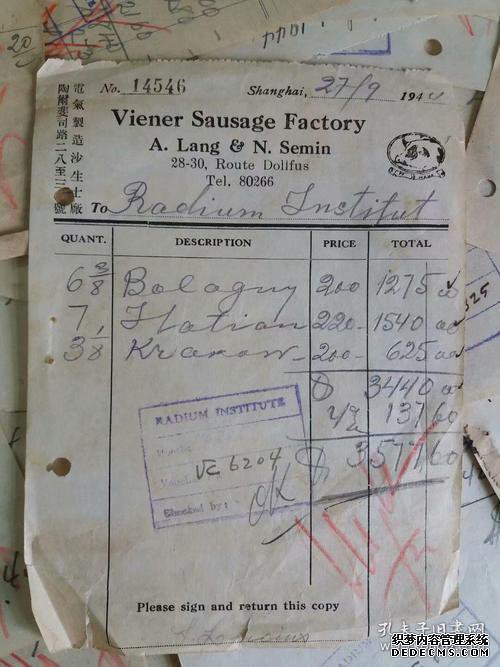 電氣製造沙生士廠
陶爾斐司路二八至三〇號
No. 14546 Shanghai, 27/9 194
Viener Sausage Factory
A. Lang & N. Semin
28-30, Route Dolifus
Tel. 80266
To Radium Institut
QUANT. DESCRIPTION PRICE TOTAL
6 3/8 Bologny 200 1275 00
7, Italian 220- 1540 00
3 1/8 Krakow- 200- 625 00
3440 00
4% 137,60
$ 3577,60
RADIUM INSTITUTE
Vc 6204
Checked by:
OK
Please sign and return this copy
孔夫子旧书网
织梦内容管理系统
DEDECMS.COM